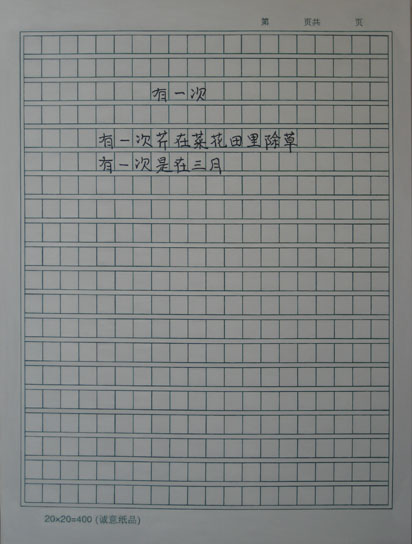 第 页共 页
有一次
有一次芹在菜花田里除草
有一次是在三月
20×20=400 (诚意纸品)